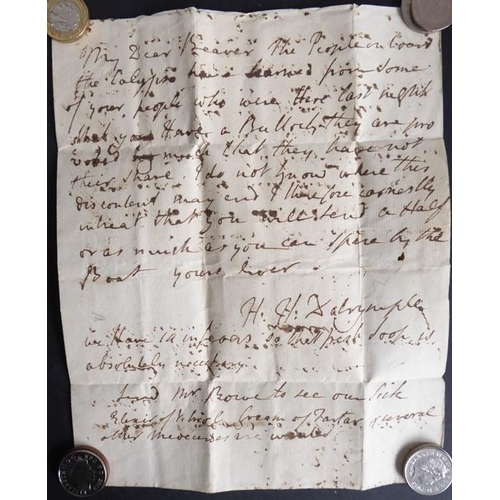 My Dear Beaver The People on board
the Calypso have learned from some
of your people who were here last night
that you Have a Bullock, they are pro
voked so much that they have not
their share I do not know where this
discontent may end I therefore earnestly
intreat that you will send a Half
or as much as you can spare by the
Boat yours ever
H. H. Dalrymple
we Have 12 in fevers so that fresh soop is
absolutely necessary
Send Mr Bowe to see our Sick
Elixir of Vitriol Cream of Tartar & several
other Medecines are wanted